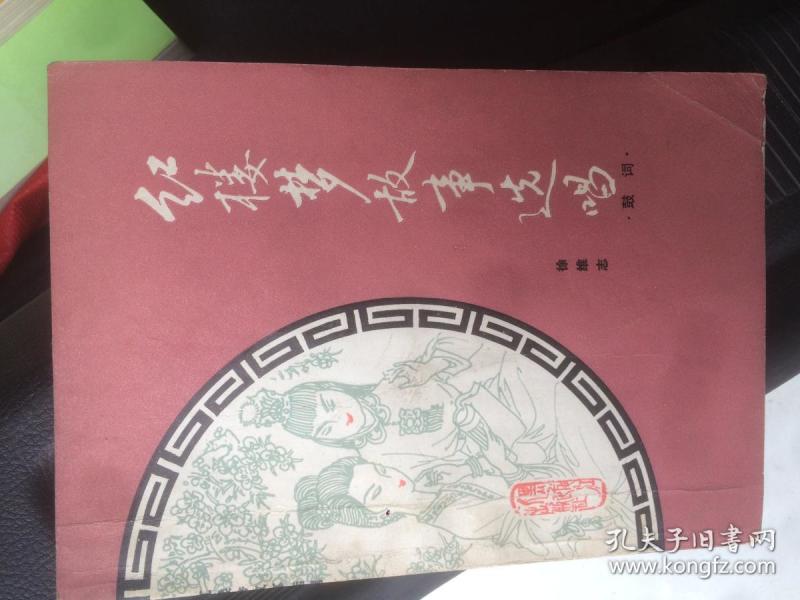 红楼梦故事选唱
·鼓词·
徐维志
孔夫子旧书网
www.kongfz.com